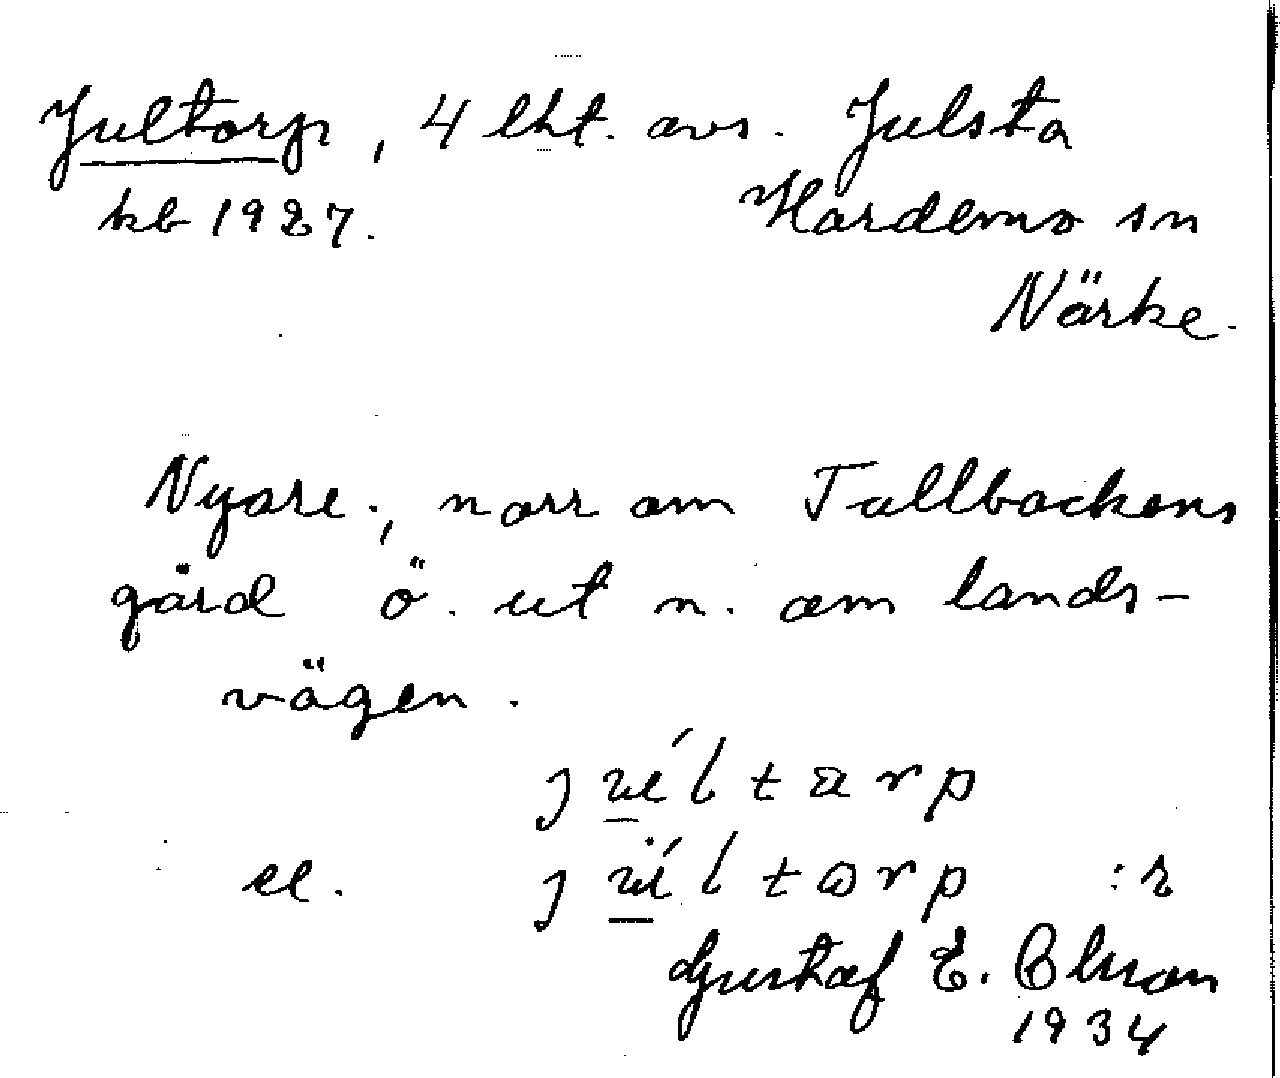 Jultorp, 4 lht. avs. Julsta
kb 1927. Hardemo sn
Närke.
Nyare., norr om Tallbackens
gård ö. ut n. om lands-
vägen.
júltarp
el. jǘltorp :r
Gustaf E. Olsson
1934